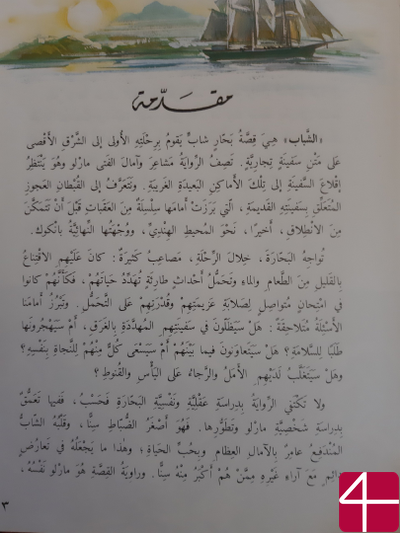 مقدّمة
«الشَّباب» هِيَ قِصَّةُ بَحّارٍ شابٍّ يَقومُ بِرِحْلَتِهِ الأولى إلى الشَّرْقِ الأَقْصى
عَلى مَتْنِ سَفينَةٍ تِجارِيَّةٍ. تَصِفُ الرِّوايَةُ مَشاعِرَ وَآمالَ الفَتى مارْلو وَهُوَ يَنْتَظِرُ
إقْلاعَ السَّفينَةِ إلى تِلْكَ الأَماكِنِ البَعيدَةِ الغَريبَةِ. وَنَتَعَرَّفُ إلى القُبْطانِ العَجوزِ
المُتَعَلِّقِ بِسَفينَتِهِ القَديمَةِ، الَّتي بَرَزَتْ أَمامَها سِلْسِلَةٌ مِنَ العَقَباتِ قَبْلَ أَنْ تَتَمَكَّنَ
مِنَ الاِنْطِلاقِ، أَخيرًا، نَحْوَ المُحيطِ الهِنْدِيِّ، وَوِجْهَتُها النِّهائِيَّةُ بانْكوك.
تُواجِهُ البَحّارَةَ، خِلالَ الرِّحْلَةِ، مَصاعِبُ كَثيرَةٌ: كانَ عَلَيْهِمِ الاِقْتِناعُ
بِالقَليلِ مِنَ الطَّعامِ وَالماءِ وَتَحَمُّلُ أَحْداثٍ طارِئَةٍ تُهَدِّدُ حَياتَهُمْ، فَكَأَنَّهُمْ كانوا
في امْتِحانٍ مُتَواصِلٍ لِصَلابَةِ عَزيمَتِهِمْ وَقُدْرَتِهِمْ عَلى التَّحَمُّلِ. وَتَبْرُزُ أَمامَنا
الأَسْئِلَةُ مُتَلاحِقَةً: هَلْ سَيَظَلّونَ في سَفينَتِهِمِ المُهَدَّدَةِ بِالغَرَقِ، أَمْ سَيَهْجُرونَها
طَلَبًا لِلسَّلامَةِ؟ هَلْ سَيَتَعاوَنونَ فيما بَيْنَهُمْ أَمْ سَيَسْعى كُلٌّ مِنْهُمْ لِلنَّجاةِ بِنَفْسِهِ؟
وَهَلْ سَيَتَغَلَّبُ لَدَيْهِمِ الأَمَلُ وَالرَّجاءُ عَلى اليَأْسِ وَالقُنوطِ؟
وَلا تَكْتَفي الرِّوايَةُ بِدِراسَةِ عَقْلِيَّةِ وَنَفْسِيَّةِ البَحّارَةِ فَحَسْبُ، فَفيها تَعَمُّقٌ
بِدِراسَةِ شَخْصِيَّةِ مارْلو وَتَطَوُّرِها. فَهُوَ أَصْغَرُ الضُّبّاطِ سِنًّا، وَقَلْبُهُ الشّابُّ
المُنْدَفِعُ عامِرٌ بِالآمالِ العِظامِ وَبِحُبِّ الحَياةِ؛ وَهٰذا ما يَجْعَلُهُ في تَعارُضٍ
دائِمٍ مَعَ آراءِ غَيْرِهِ مِمَّنْ هُمْ أَكْبَرُ مِنْهُ سِنًّا. وَراوِيَةُ القِصَّةِ هُوَ مارْلو نَفْسُهُ،
٣
4